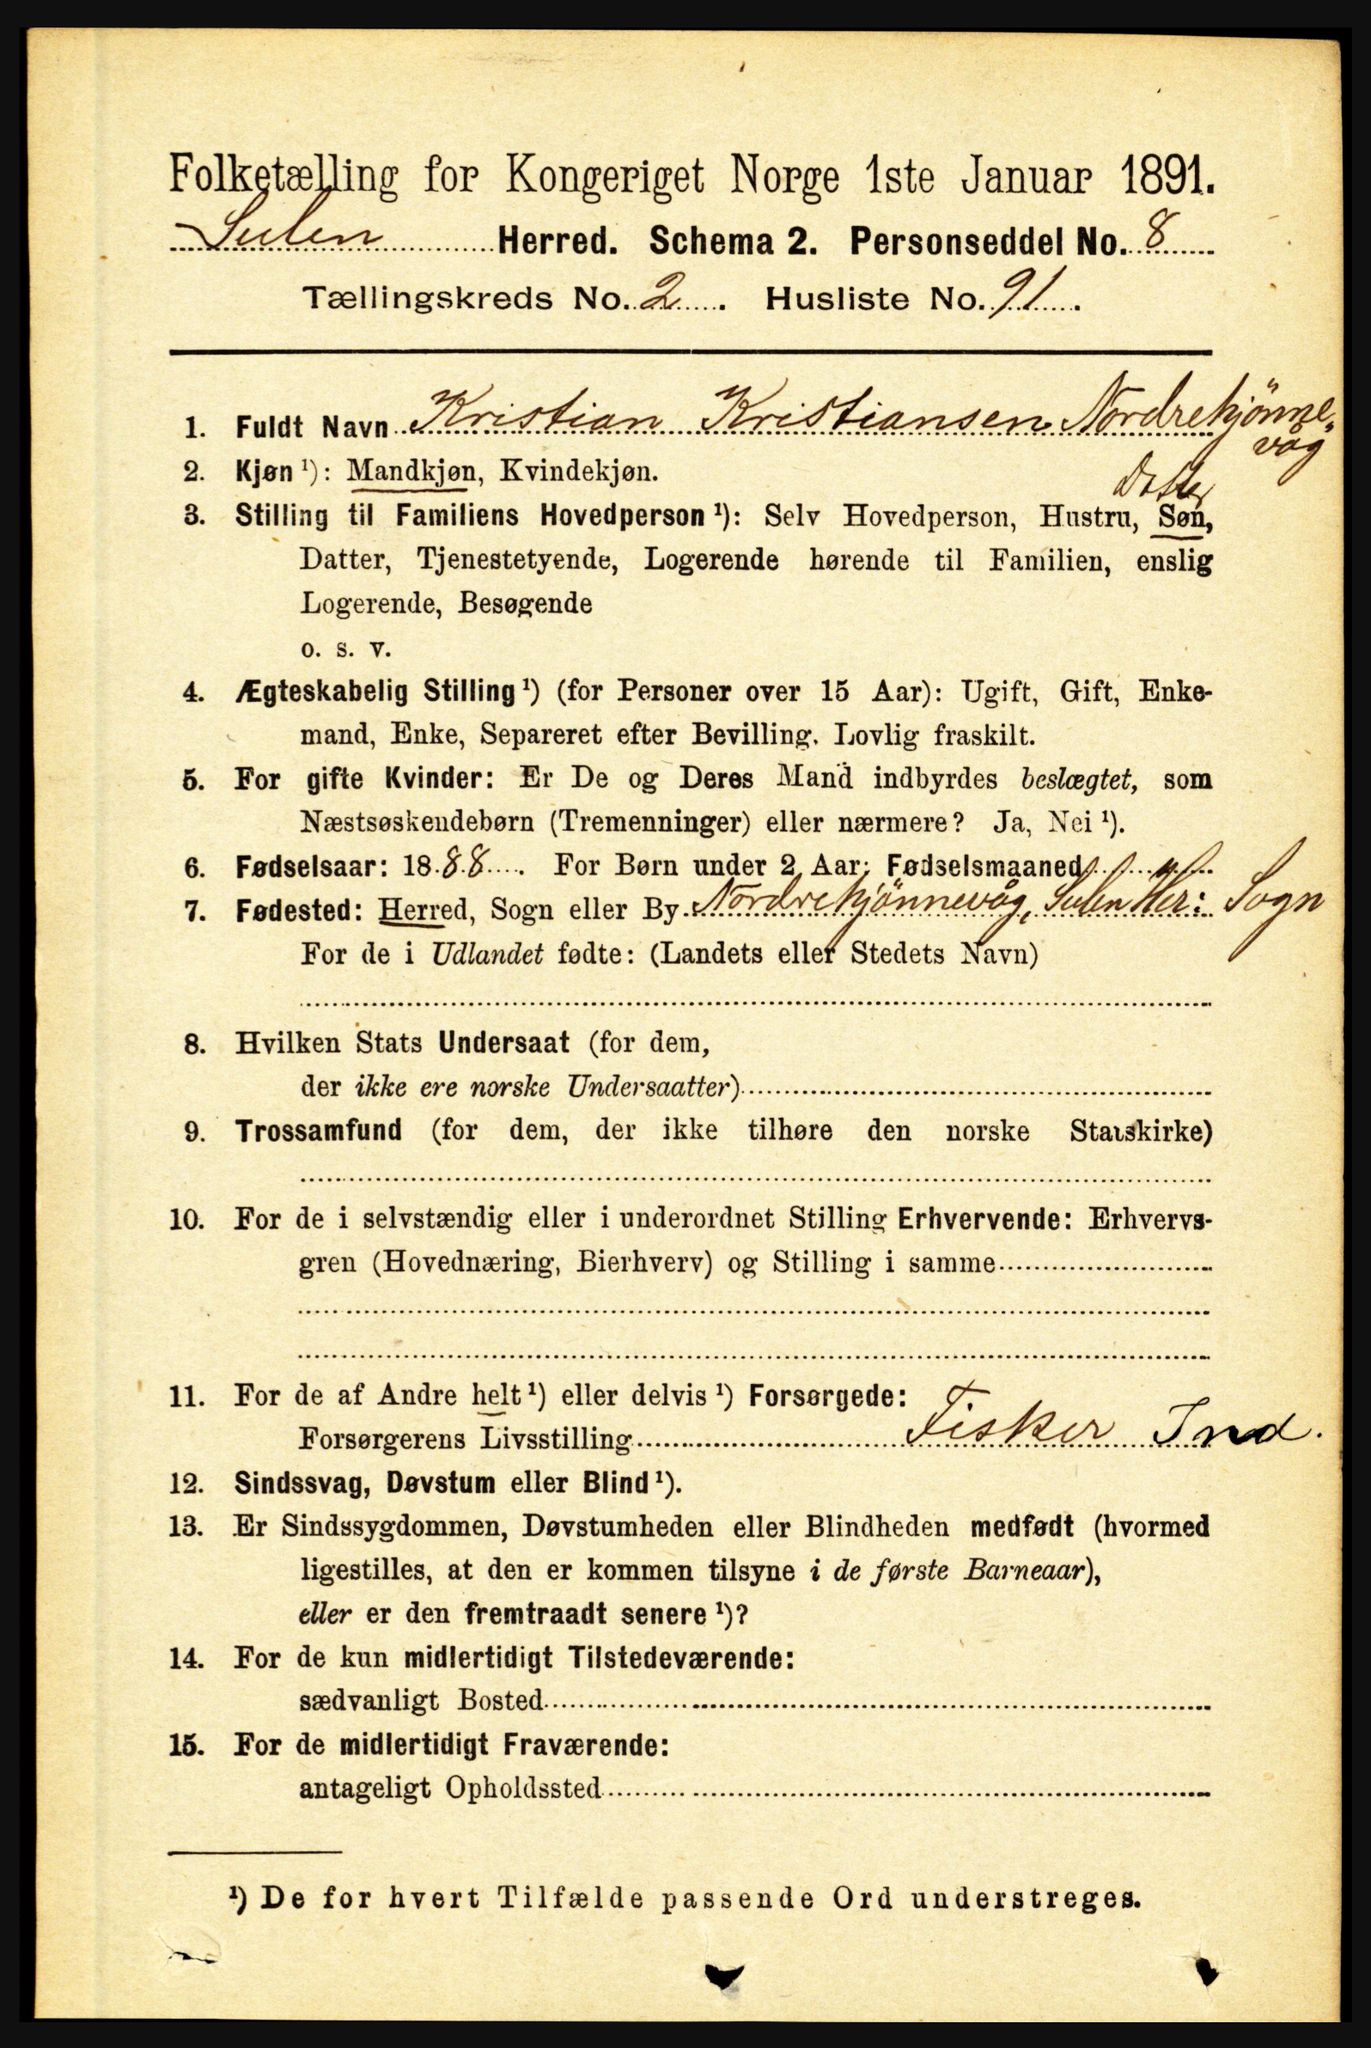 Folketælling for Kongeriget Norge 1ste Januar 1891.
Sulen Herred. Schema 2. Personseddel No. 8
Tællingskreds No. 2. Husliste No. 91.
1. Fuldt Navn Kristian Kristiansen Nordrehjönne-
våg
2. Kjøn ¹): Mandkjøn, Kvindekjøn.
Datter
3. Stilling til Familiens Hovedperson ¹): Selv Hovedperson, Hustru, Søn,
Datter, Tjenestetyende, Logerende hørende til Familien, enslig
Logerende, Besøgende
o. s. v.
4. Ægteskabelig Stilling ¹) (for Personer over 15 Aar): Ugift, Gift, Enke-
mand, Enke, Separeret efter Bevilling. Lovlig fraskilt.
5. For gifte Kvinder: Er De og Deres Mand indbyrdes beslægtet, som
Næstsøskendebørn (Tremenninger) eller nærmere? Ja, Nei ¹).
6. Fødselsaar: 1888. For Børn under 2 Aar: Fødselsmaaned
7. Fødested: Herred, Sogn eller By Nordrehjönnevåg, Sulen Her: Sogn
For de i Udlandet fødte: (Landets eller Stedets Navn)
8. Hvilken Stats Undersaat (for dem,
der ikke ere norske Undersaatter)
9. Trossamfund (for dem, der ikke tilhøre den norske Statskirke)
10. For de i selvstændig eller i underordnet Stilling Erhvervende: Erhvervs-
gren (Hovednæring, Bierhverv) og Stilling i samme
11. For de af Andre helt ¹) eller delvis ¹) Forsørgede:
Forsørgerens Livsstilling Fisker Ind.
12. Sindssvag, Døvstum eller Blind ¹).
13. Er Sindssygdommen, Døvstumheden eller Blindheden medfødt (hvormed
ligestilles, at den er kommen tilsyne i de første Barneaar),
eller er den fremtraadt senere ¹)?
14. For de kun midlertidigt Tilstedeværende:
sædvanligt Bosted
15. For de midlertidigt Fraværende:
antageligt Opholdssted
¹) De for hvert Tilfælde passende Ord understreges.